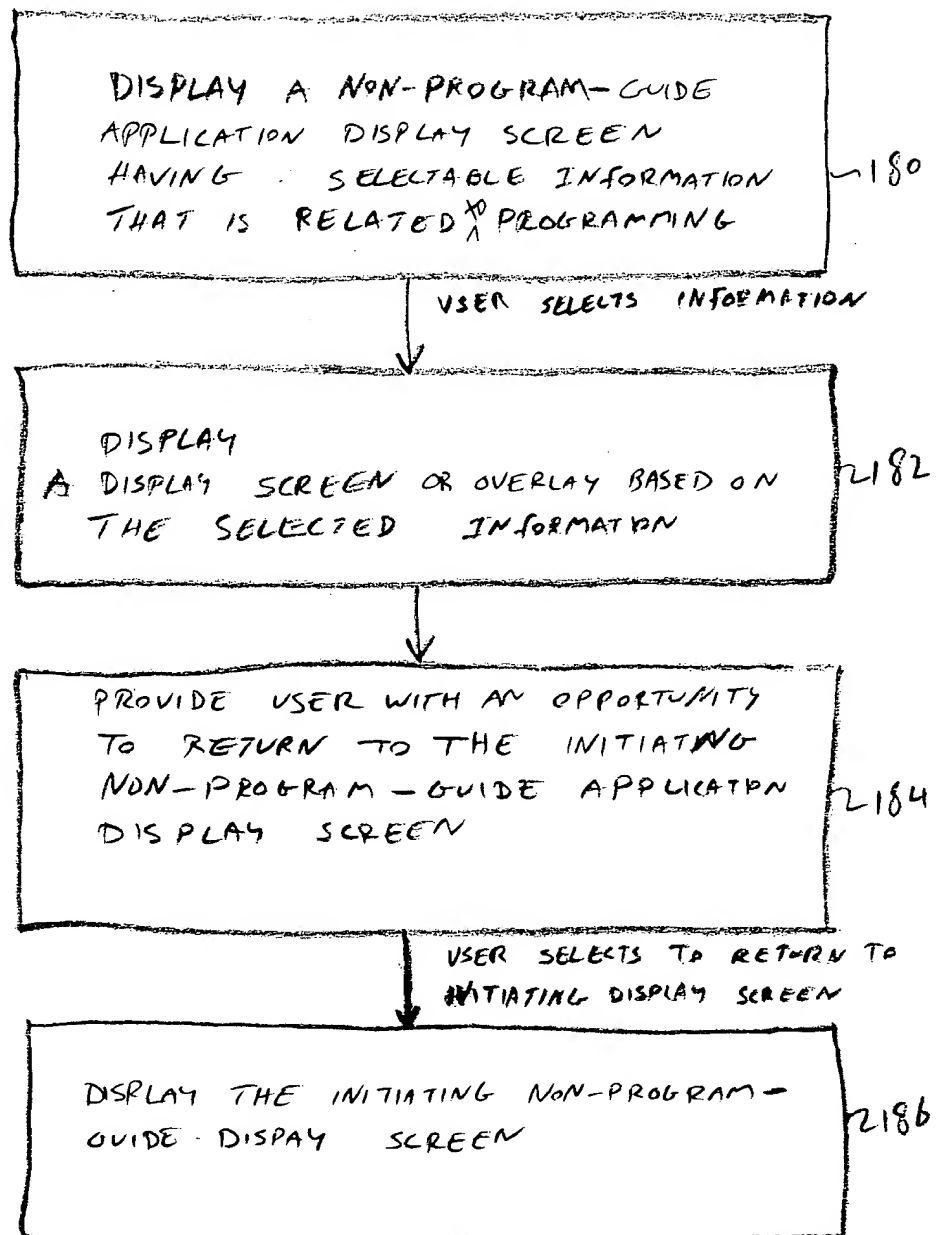 DISPLAY A NON-PROGRAM-GUIDE
APPLICATION DISPLAY SCREEN
HAVING SELECTABLE INFORMATION
THAT IS RELATED TO PROGRAMMING
180
USER SELECTS INFORMATION
DISPLAY
A DISPLAY SCREEN OR OVERLAY BASED ON
THE SELECTED INFORMATION
182
PROVIDE USER WITH AN OPPORTUNITY
TO RETURN TO THE INITIATING
NON-PROGRAM-GUIDE APPLICATION
DISPLAY SCREEN
184
USER SELECTS TO RETURN TO
INITIATING DISPLAY SCREEN
DISPLAY THE INITIATING NON-PROGRAM-
GUIDE DISPAY SCREEN
186